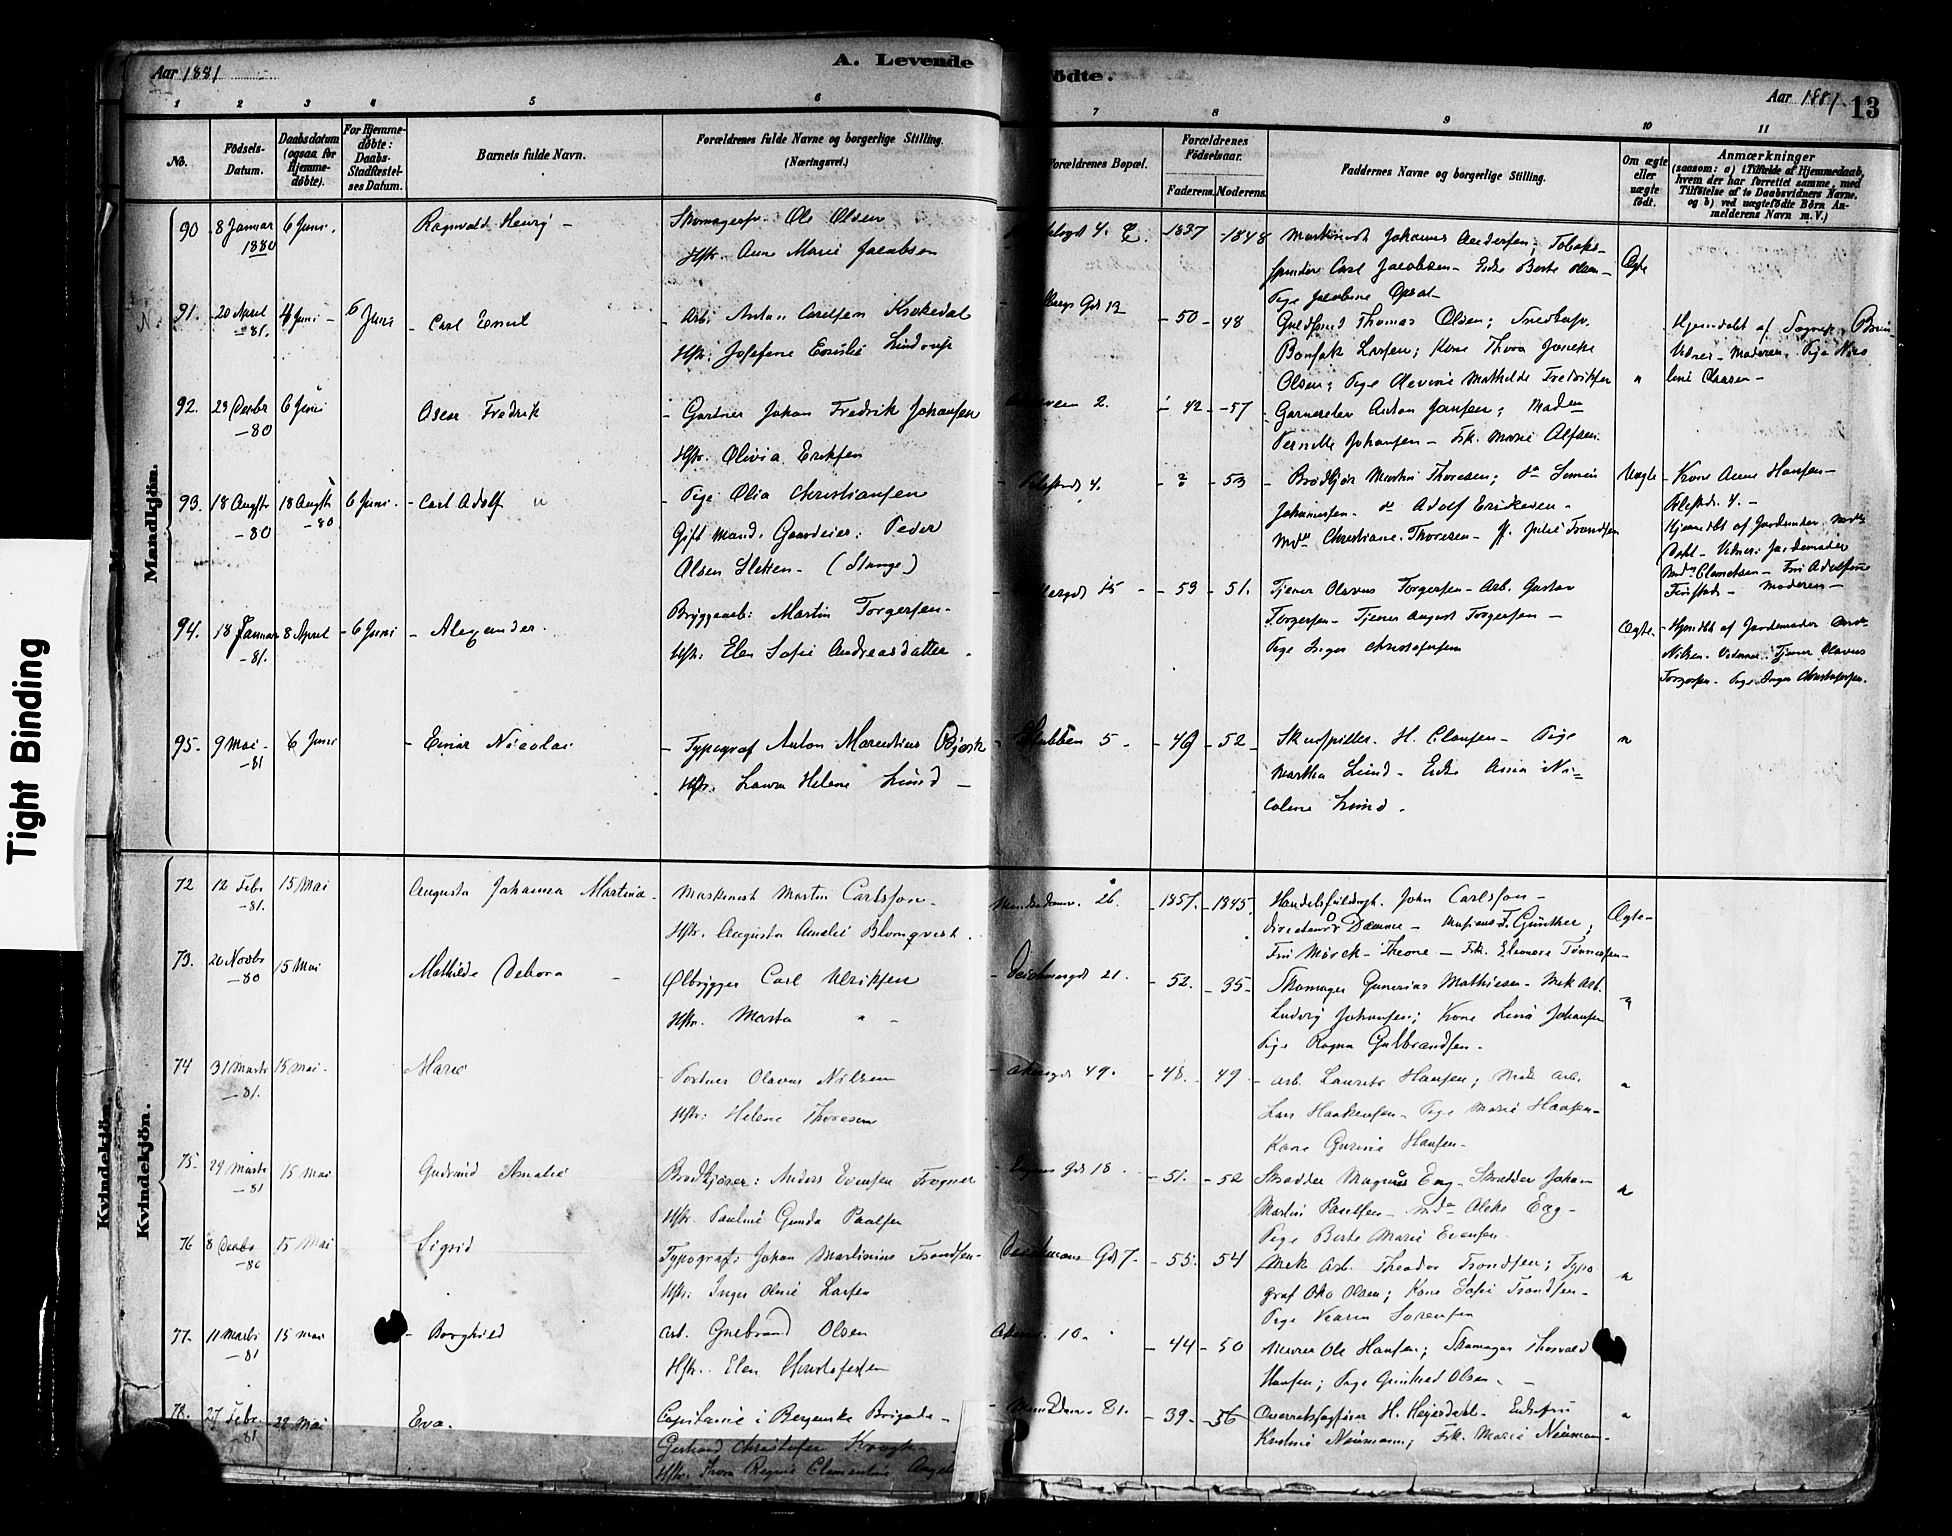 Tight Binding
Aar 1881
A. Levende
Fødte.
Aar 1881
13
1 2 3 4 5 6 7 8 9 10 11
No.
Fødsels-
Datum.
Daabsdatum
(ogsaa for
Hjemme-
døbte).
For Hjemme-
døbte:
Daabs-
Stadfæstel-
ses Datum.
Barnets fulde Navn.
Forældrenes fulde Navne og borgerlige Stilling.
(Næringsvei.)
Forældrenes Bopæl.
Forældrenes
Fødselsaar.
Faderens. Moderens.
Faddernes Navne og borgerlige Stilling.
Om ægte
eller
uægte
født.
Anmærkninger
(saasom: a) i Tilfælde af Hjemmedaab,
hvem der har forrettet samme, med
Tilføielse af to Daabsvidners Navne,
og b) ved uægtefødte Børn An-
melderens Navn m. V.)
Mandkjön.
90 8 Januar 1880 6 Juni. Ragnvald Henry -
Skomagersv. Ole Olsen
Hstr. Anne Marie Jacobsen
4. 1837 - 1848
Maskinist Johannes Andersen; Tobaks-
spinder Carl Jacobsen - Enke Berte Olsen -
Pige Jacobine
Ægte
91. 20 April -81. 4 Juni - 6 Juni - Carl Emil
Arb: Anton Carelsen Krokedal
Hstr: Josefine Emilie Lindrup
Gd 12 - 50 - 48
Guldsmed Thomas Olsen; Snedkersv.
Larsen; Kone Thora
Olsen; Pige Olevine Mathilde Fredriksen
"
Hjemdøbt af Sognepr.
Vidner - Moderen. Pige Nico
line Claasen -
92. 29 Decbr -80 6 Juni Oscar Fredrik
- Gartner Johan Fredrik Johansen
Hstr. Olivia Eriksen
2. - 42 - 57
Garnerelev Anton Jansen; Madm
Pernille Johansen - Frk. Marie Alfsen.
93. 18 Augst -80 18 Augst -80 6 Juni. - Carl Adolf
- Pige Olia Christiansen
Gift Mand. Gaardeier: Peder
Olsen Sletten - (Stange)
4. - ? - 53
- Brødkjør Martin Thoresen; do
Johannesen. do Adolf Eriksen -
Mdm Christiane Thoresen -
Uægte
- Kone Anne Hansen -
4. -
Hjemdøbt af Jordmoder
Vidner: Jordemoder
- Moderen -
94. 18 Januar -81. 8 April - 6 Juni - Alexander.
Bryggearb: Martin Torgersen -
Hstr. Elen Sofie Andreasdatter.
15 - - 53 - 51.
Tjener Olavus Torgersen - Arb. Gustav
Torgersen - Tjener August Torgersen -
Pige Inger Christofersen
Ægte
- Hjemdbt af Jordemoder
Nilsen. Vidner: Tjener Olavus
Torgersen. Pige Inger Christofersen.
95. 9 Mai -81 6 Juni - Einar Nicolai
- Typograf Anton Marentius
Hstr. Laura Helene Lund -
5 - - 49 - 52 -
Skuespiller. H. Clausen - Pige
Martha Lund - Enke Anna Ni=
coline Lund.
"
Kvindekjön.
Kvindekjön.
72 12 Febr -81. 15 Mai Augusta Johanna Martina -
Maskinist Martin Carlsson -
Hstr. Augusta Amalie Blomqvist.
26. - 1857. - 1845.
Handelsfuldmgt. John Carlsson -
Directeur Damme - Musicus F. Günther;
Fru Mørck - Theone - Frk. Eleonora Tønnesen -
Ægte -
73. 20 Novbr -80 15 Mai Mathilde Debora -
Ølbrygger Carl Ulriksen
Hstr. Marta "
21. - 52. - 35 -
Skomager Gunerius Mathiesen - Mek Arb.
Ludvig Johansen; Kone Lina Johansen
Pige Ragna Gulbrandsen -
"
74 31 Marts -81. 15 Mai - Marie
- Portner Olavus Nilsen
Hstr: Helene Thoresen
49. - 48. - 49
- Arb. Laurits Hansen; Mek Arb.
Lars Haakensen - Pige Marie Hansen -
Kone Gurine Hansen -
"
75 - 29 Marts -81 15 Mai Gudrund Amalie
Brødkjører: Anders Evensen Frogner
Hstr. Pauline Gunda Paalsen
Gd 18. - 51. - 52
Skrædder Magnus Eng - Skrædder Johan
Martin Paulsen - Mdm Aleks Eng -
Pige Berte Marie Evensen
"
76 8 Decbr -80 15 Mai Sigrid
Typograf: Johan Martinius Trondsen -
Hstr. Inger Oline Larsen
Gd 7 - - 55. - 54
Mek Arb. Theodor Trondsen; Typo
graf Otto Olsen; Kone Sofie Trondsen -
Pige Karen Sørensen
"
77. 11 Marts -81 15 Mai - Borghild
Arb. Gulbrand Olsen
Hstr. Elen Christofersen
10. - 44 - 50
Murer Ole Hansen; Skomager Thorvald
Hansen; Pige Gunhild Olsen. -
78. 27 Febr -81 - 22 Mai Eva.
Capitaine i Bergenske Brigade -
Gerhard Christofer Krogh -
Hstr. Thora Regine Clementine
81. - 39 - 56
Overretssagfører H. Heyerdahl - Enkefru
Kristine Neumann; Frk. Marie Neuman -
"